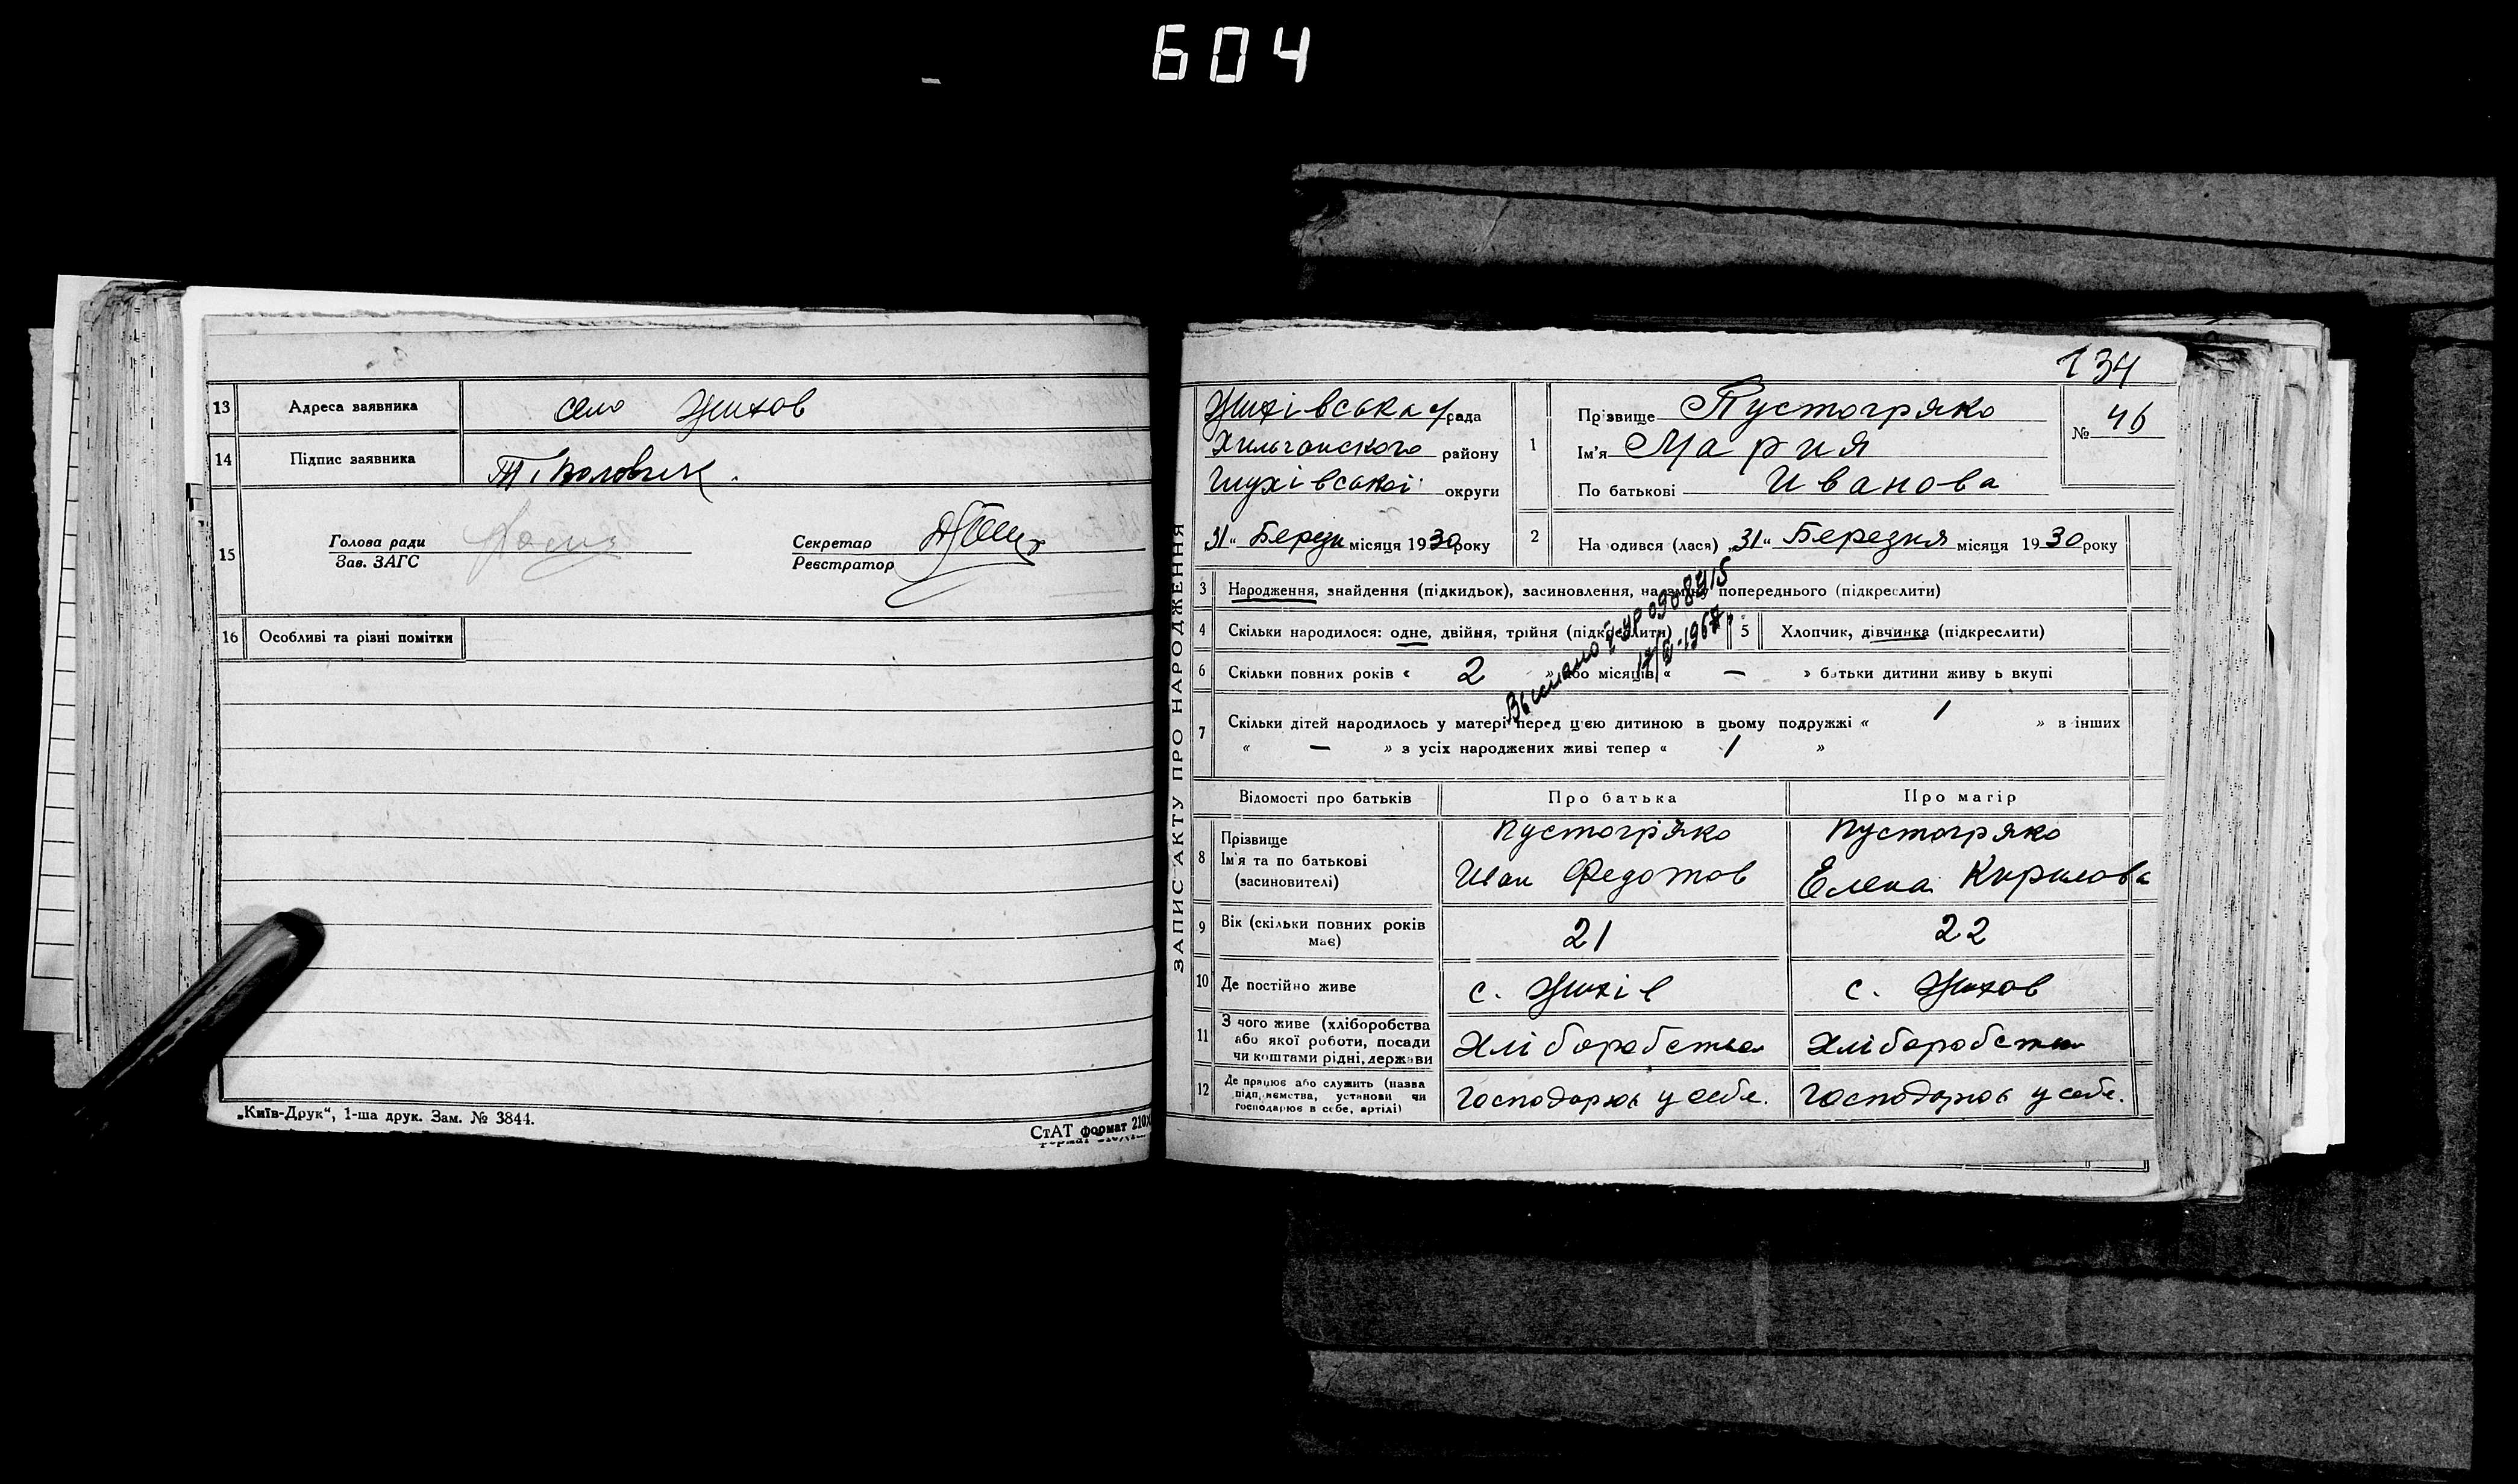 604
13 Адреса заявника село Жихов
14 Підпис заявника
15 Голова ради
Зав. ЗАГС
Секретар
Реєстратор
16 Особливі та різні помітки
„Київ-Друк“, 1-ша друк. Зам. № 3844.
СтАТ формат 210Х
134
ЗАПИС АКТУ ПРО НАРОДЖЕННЯ
Жихівська с/рада
Хильчанського району
Глухівської округи
31 „ Березн місяця 1930 року
1 Прізвище Пустогряко
Ім'я Мария
По батькові Иванова
№ 46
2 На одився (лася) „31“ Березня місяця 1930 року
3 Народження, знайдення (підкидьок), засиновлення, на зміну попереднього (підкреслити)
4 Скільки народилося: одне, двійня, трійня (підкреслити)
5 Хлопчик, дівчинка (підкреслити)
6 Скільки повних років « 2 » або місяців « — » батьки дитини живу ь вкупі
17/VI-1967
7 Скільки дітей народилось у матері перед цією дитиною в цьому подружжі « 1 » в інших
« — » з усіх народжених живі тепер « 1 »
Відомості про батьків Про батька Про матір
8 Прізвище Пустогряко Пустогряко
Ім'я та по батькові Иван Федотов Елена Кирилова
(засиновителі)
9 Вік (скільки повних років 21 22
має)
10 Де постійно живе с. Жихів с. Жихов
11 З чого живе (хліборобства
або якої роботи, посади Хліборобства Хліборобства
чи коштами рідні, держави
12 Де працює або служить (назва
підприємства, установи чи Господарює у себе. Господарює у себе.
господарює в себе, артілі)